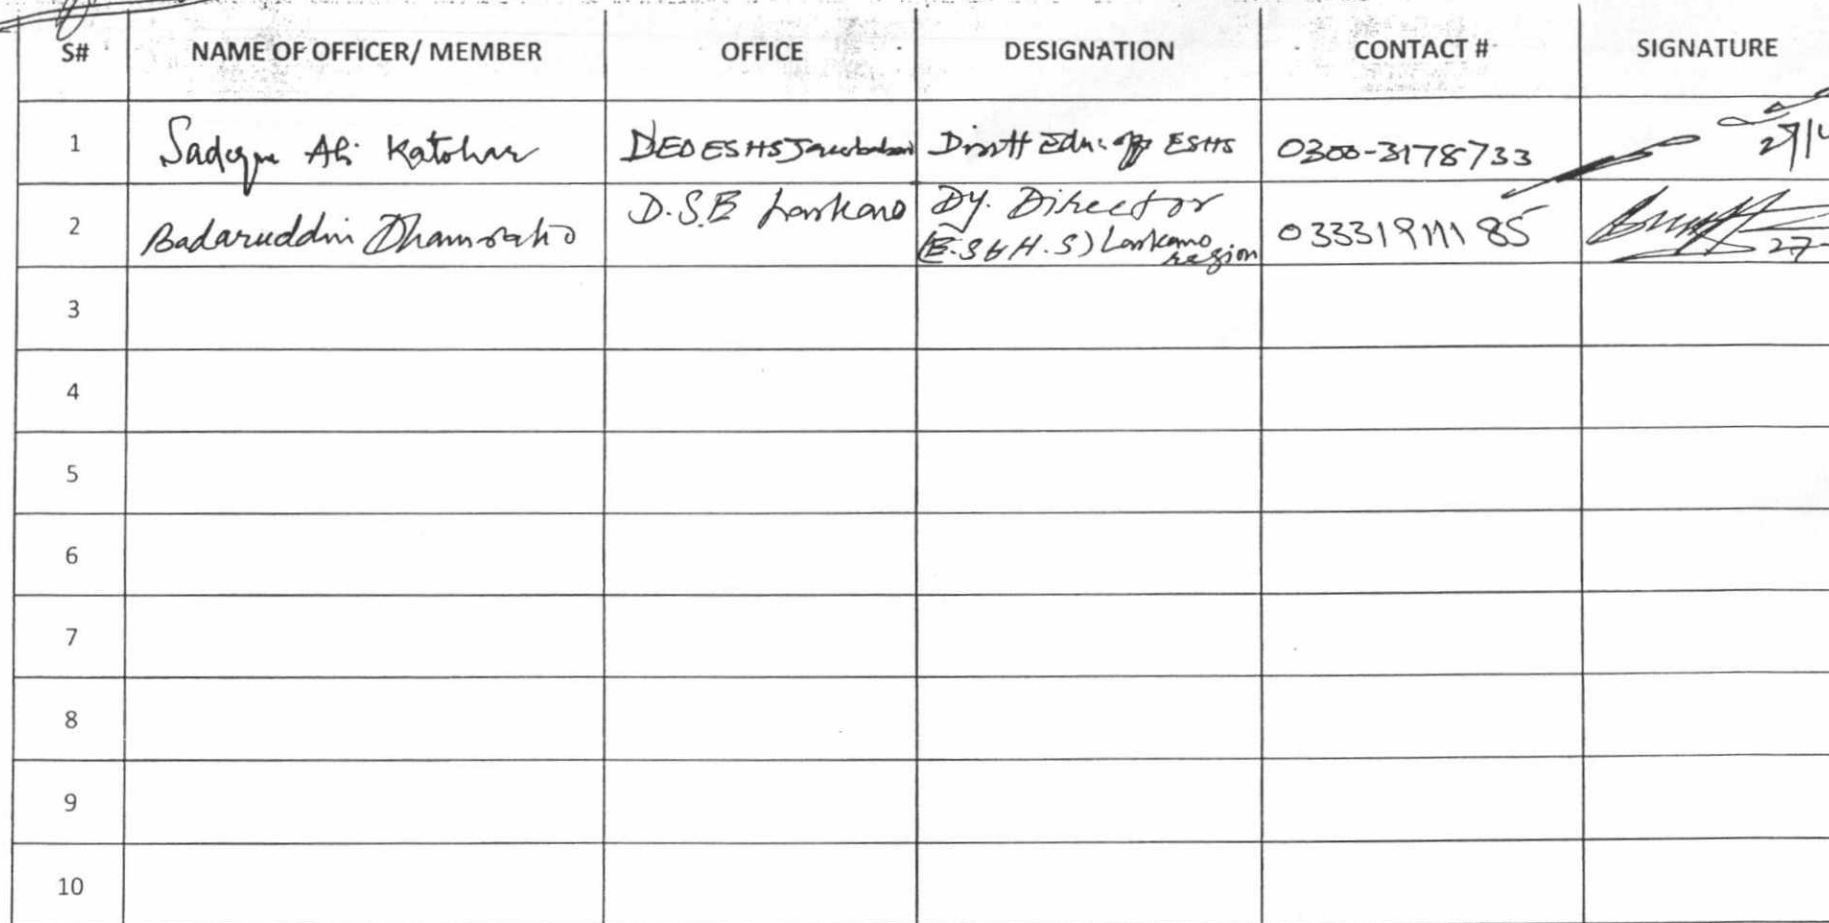 S# NAME OF OFFICER/ MEMBER OFFICE DESIGNATION CONTACT # SIGNATURE
1 Sadeque Ali Katohar DEO ESHS Jacobabad Distt Edu: off ESHS 0300-3178733 27/
2 Badaruddin Dhamraho D.S.E Larkano Dy. Director 03331911185 27-
(E.S & H.S) Larkano
region
3
4
5
6
7
8
9
10